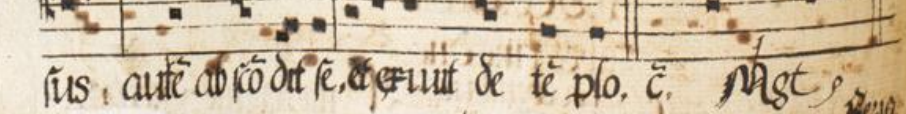 sus. autē ab scō dit se, et exiuit de tē plo. c̄. Mgt